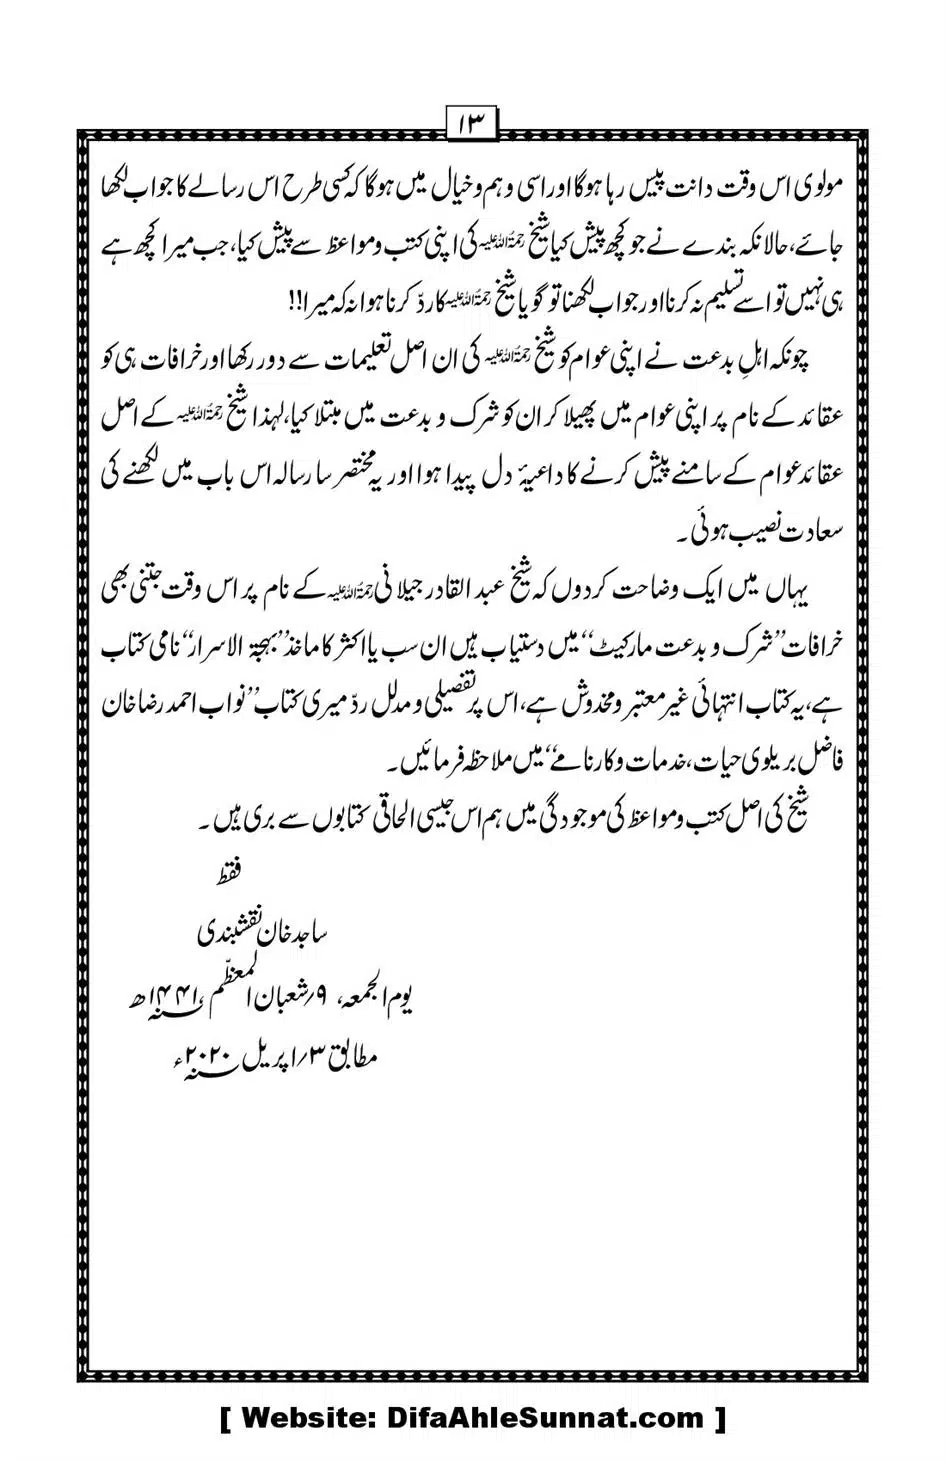 ۱۳
مولوی اس وقت دانت پیس رہا ہوگا اور اسی وہم وخیال میں ہوگا کہ کسی طرح اس رسالے کا جواب لکھا
جائے، حالانکہ بندے نے جو کچھ پیش کیا شیخ رحمۃ اللہ علیہ کی اپنی کتب ومواعظ سے پیش کیا، جب میرا کچھ ہے
ہی نہیں تو اسے تسلیم نہ کرنا اور جواب لکھنا تو گویا شیخ رحمۃ اللہ علیہ کا ردّ کرنا ہوا نہ کہ میرا!!
چونکہ اہلِ بدعت نے اپنی عوام کو شیخ رحمۃ اللہ علیہ کی ان اصل تعلیمات سے دور رکھا اور خرافات ہی کو
عقائد کے نام پر اپنی عوام میں پھیلا کر ان کو شرک و بدعت میں مبتلا کیا، لہذا شیخ رحمۃ اللہ علیہ کے اصل
عقائد عوام کے سامنے پیش کرنے کا داعیۂ دل پیدا ہوا اور یہ مختصر سا رسالہ اس باب میں لکھنے کی
سعادت نصیب ہوئی۔
یہاں میں ایک وضاحت کردوں کہ شیخ عبد القادر جیلانی رحمۃ اللہ علیہ کے نام پر اس وقت جتنی بھی
خرافات ”شرک و بدعت مارکیٹ“ میں دستیاب ہیں ان سب یا اکثر کا ماخذ ”بہجۃ الاسرار“ نامی کتاب
ہے، یہ کتاب انتہائی غیر معتبر ومخدوش ہے، اس پر تفصیلی و مدلل ردّ میری کتاب ”نواب احمد رضا خان
فاضل بریلوی حیات، خدمات وکارنامے“ میں ملاحظہ فرمائیں۔
شیخ کی اصل کتب ومواعظ کی موجودگی میں ہم اس جیسی الحاقی کتابوں سے بری ہیں۔
فقط
ساجد خان نقشبندی
یوم الجمعہ، ۹؍شعبان المعظّم، ۱۴۴۱ھ
مطابق ۳؍اپریل ۲۰۲۰ء
[ Website: DifaAhleSunnat.com ]